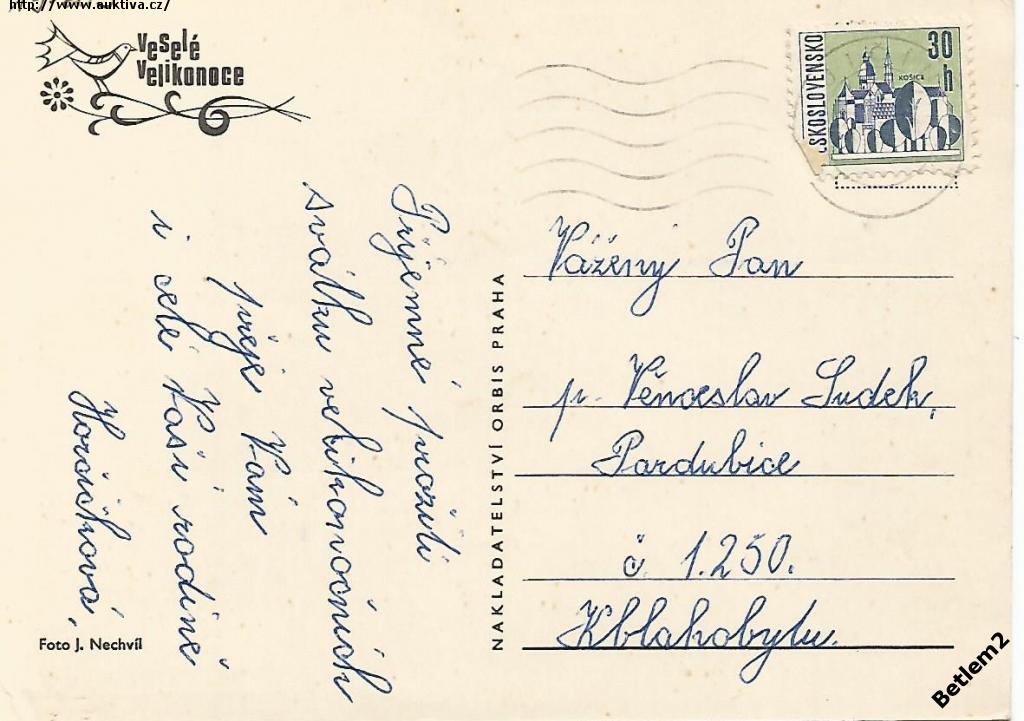 http://www.auktiva.cz/
Veselé
Velikonoce
ČSKOSLOVENSKO
30
h
KOŠICE
Příjemné prožití
svátků velikonočních
přeje Vám
i celé Vaší rodině
Horáčková,
NAKLADATELSTVÍ ORBIS PRAHA
Vážený Pan
p. Věnceslav Sudek,
Pardubice
č 1.250.
K blahobytu.
Foto J. Nechvíl
Betlem2